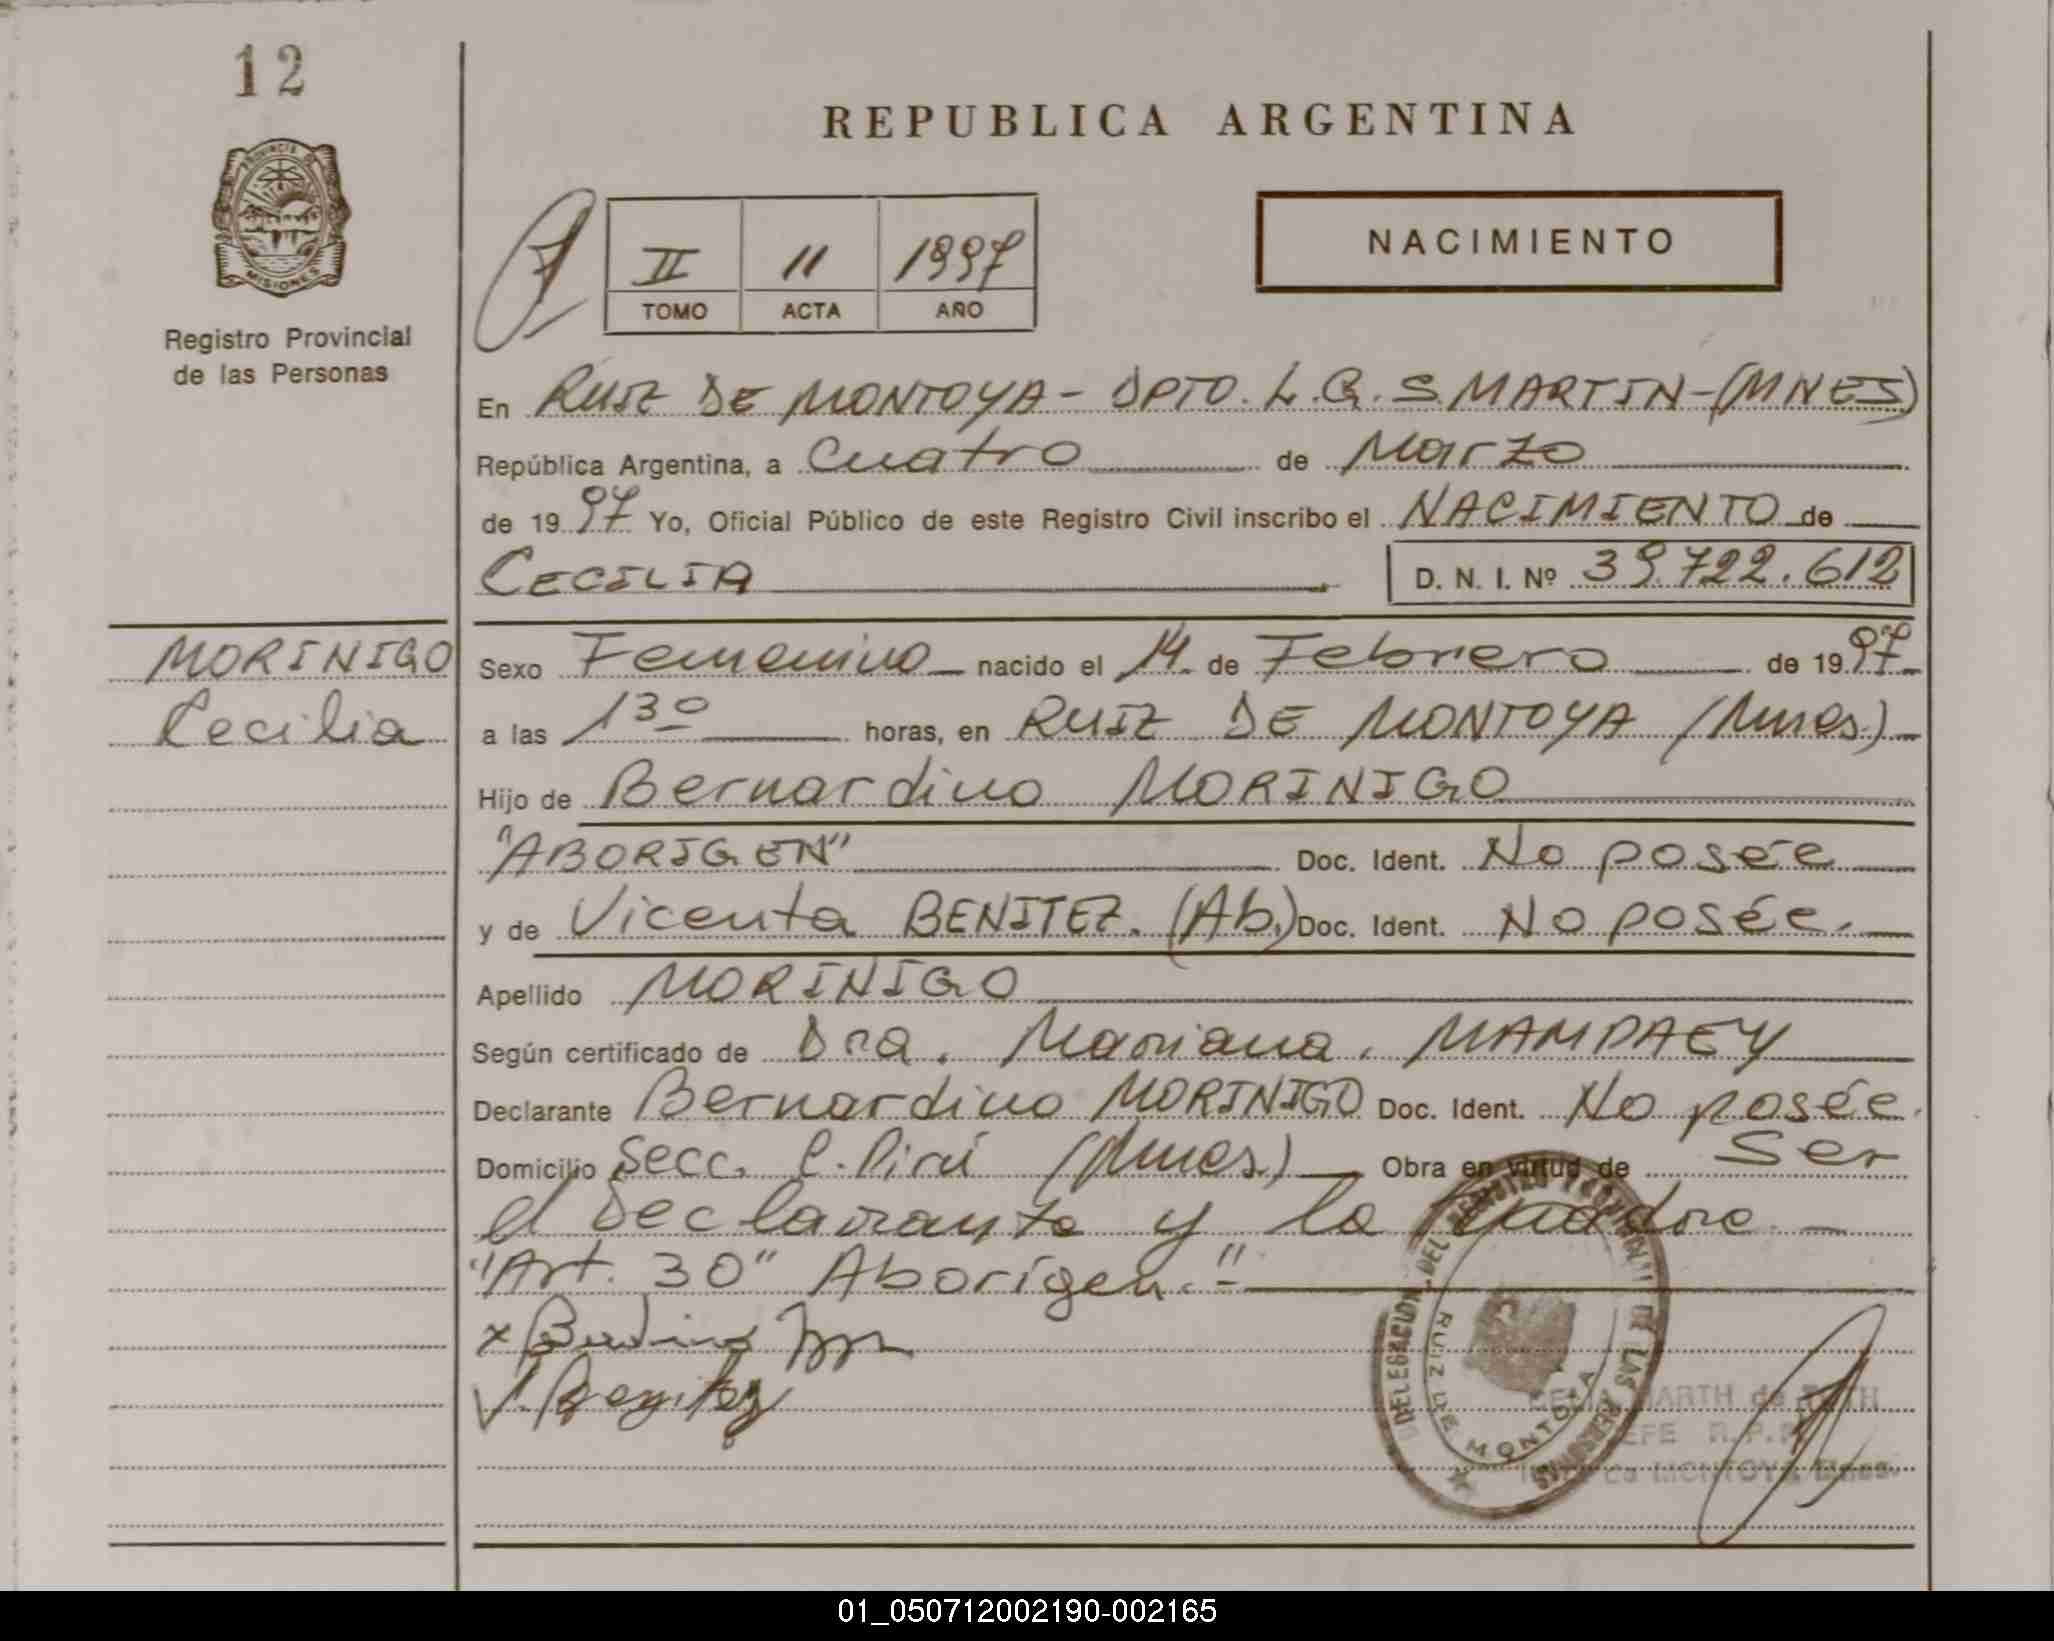 12
PROVINCIA DE
MISIONES
Registro Provincial
de las Personas
REPUBLICA ARGENTINA
II 11 1997
TOMO ACTA AÑO
NACIMIENTO
En RUIZ DE MONTOYA - DPTO. L.G. S. MARTIN - (MNES)
República Argentina, a Cuatro de Marzo
de 1997 Yo, Oficial Público de este Registro Civil inscribo el NACIMIENTO de
CECILIA D. N. I. Nº 39.722.612
MORINIGO
Cecilia
Sexo Femenino nacido el 14 de Febrero de 1997
a las 13º horas, en RUIZ DE MONTOYA (Mnes.)
Hijo de Bernardino MORINIGO
"ABORIGEN" Doc. Ident. No posée
y de Vicenta BENITEZ. (Ab.) Doc. Ident. No posée.
Apellido MORINIGO
Según certificado de Dra. Mariana. MAMPAEY
Declarante Bernardino MORINIGO Doc. Ident. No posée.
Domicilio Secc. C. Pirú (Mnes.) Obra en virtud de Ser
el declarante y la madre. -
"Art. 30" Aborígen."-
V. Benitez
DELEGACION DEL REGISTRO PROVINCIAL DE LAS PERSONAS
RUIZ DE MONTOYA
MARTH de
JEFE R.P.P.
Ruiz de MONTOYA Mnes.
01_050712002190-002165